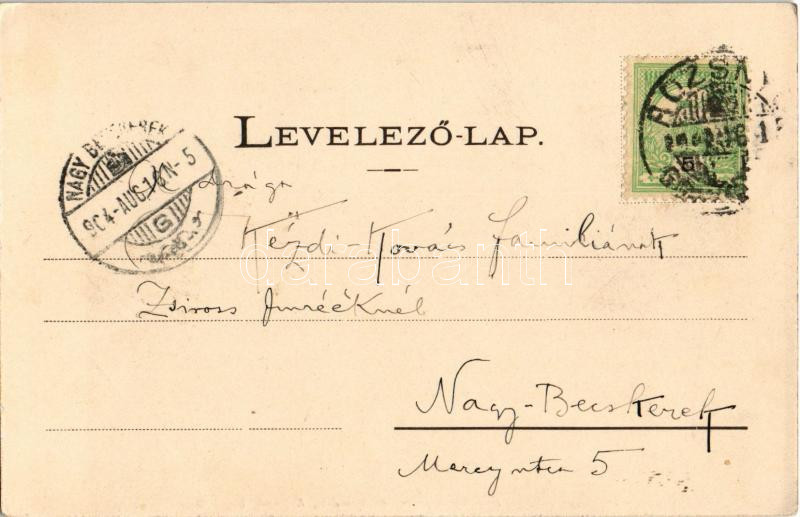 LEVELEZŐ-LAP.
RÓZSA
5
NAGY BECSKEREK
904-AUG.16N-5
G
drága
Kézdi-Kovács famíliának
Zsiross Imrééknél
Nagy-Becskerek
Marcy utca 5
darabanth